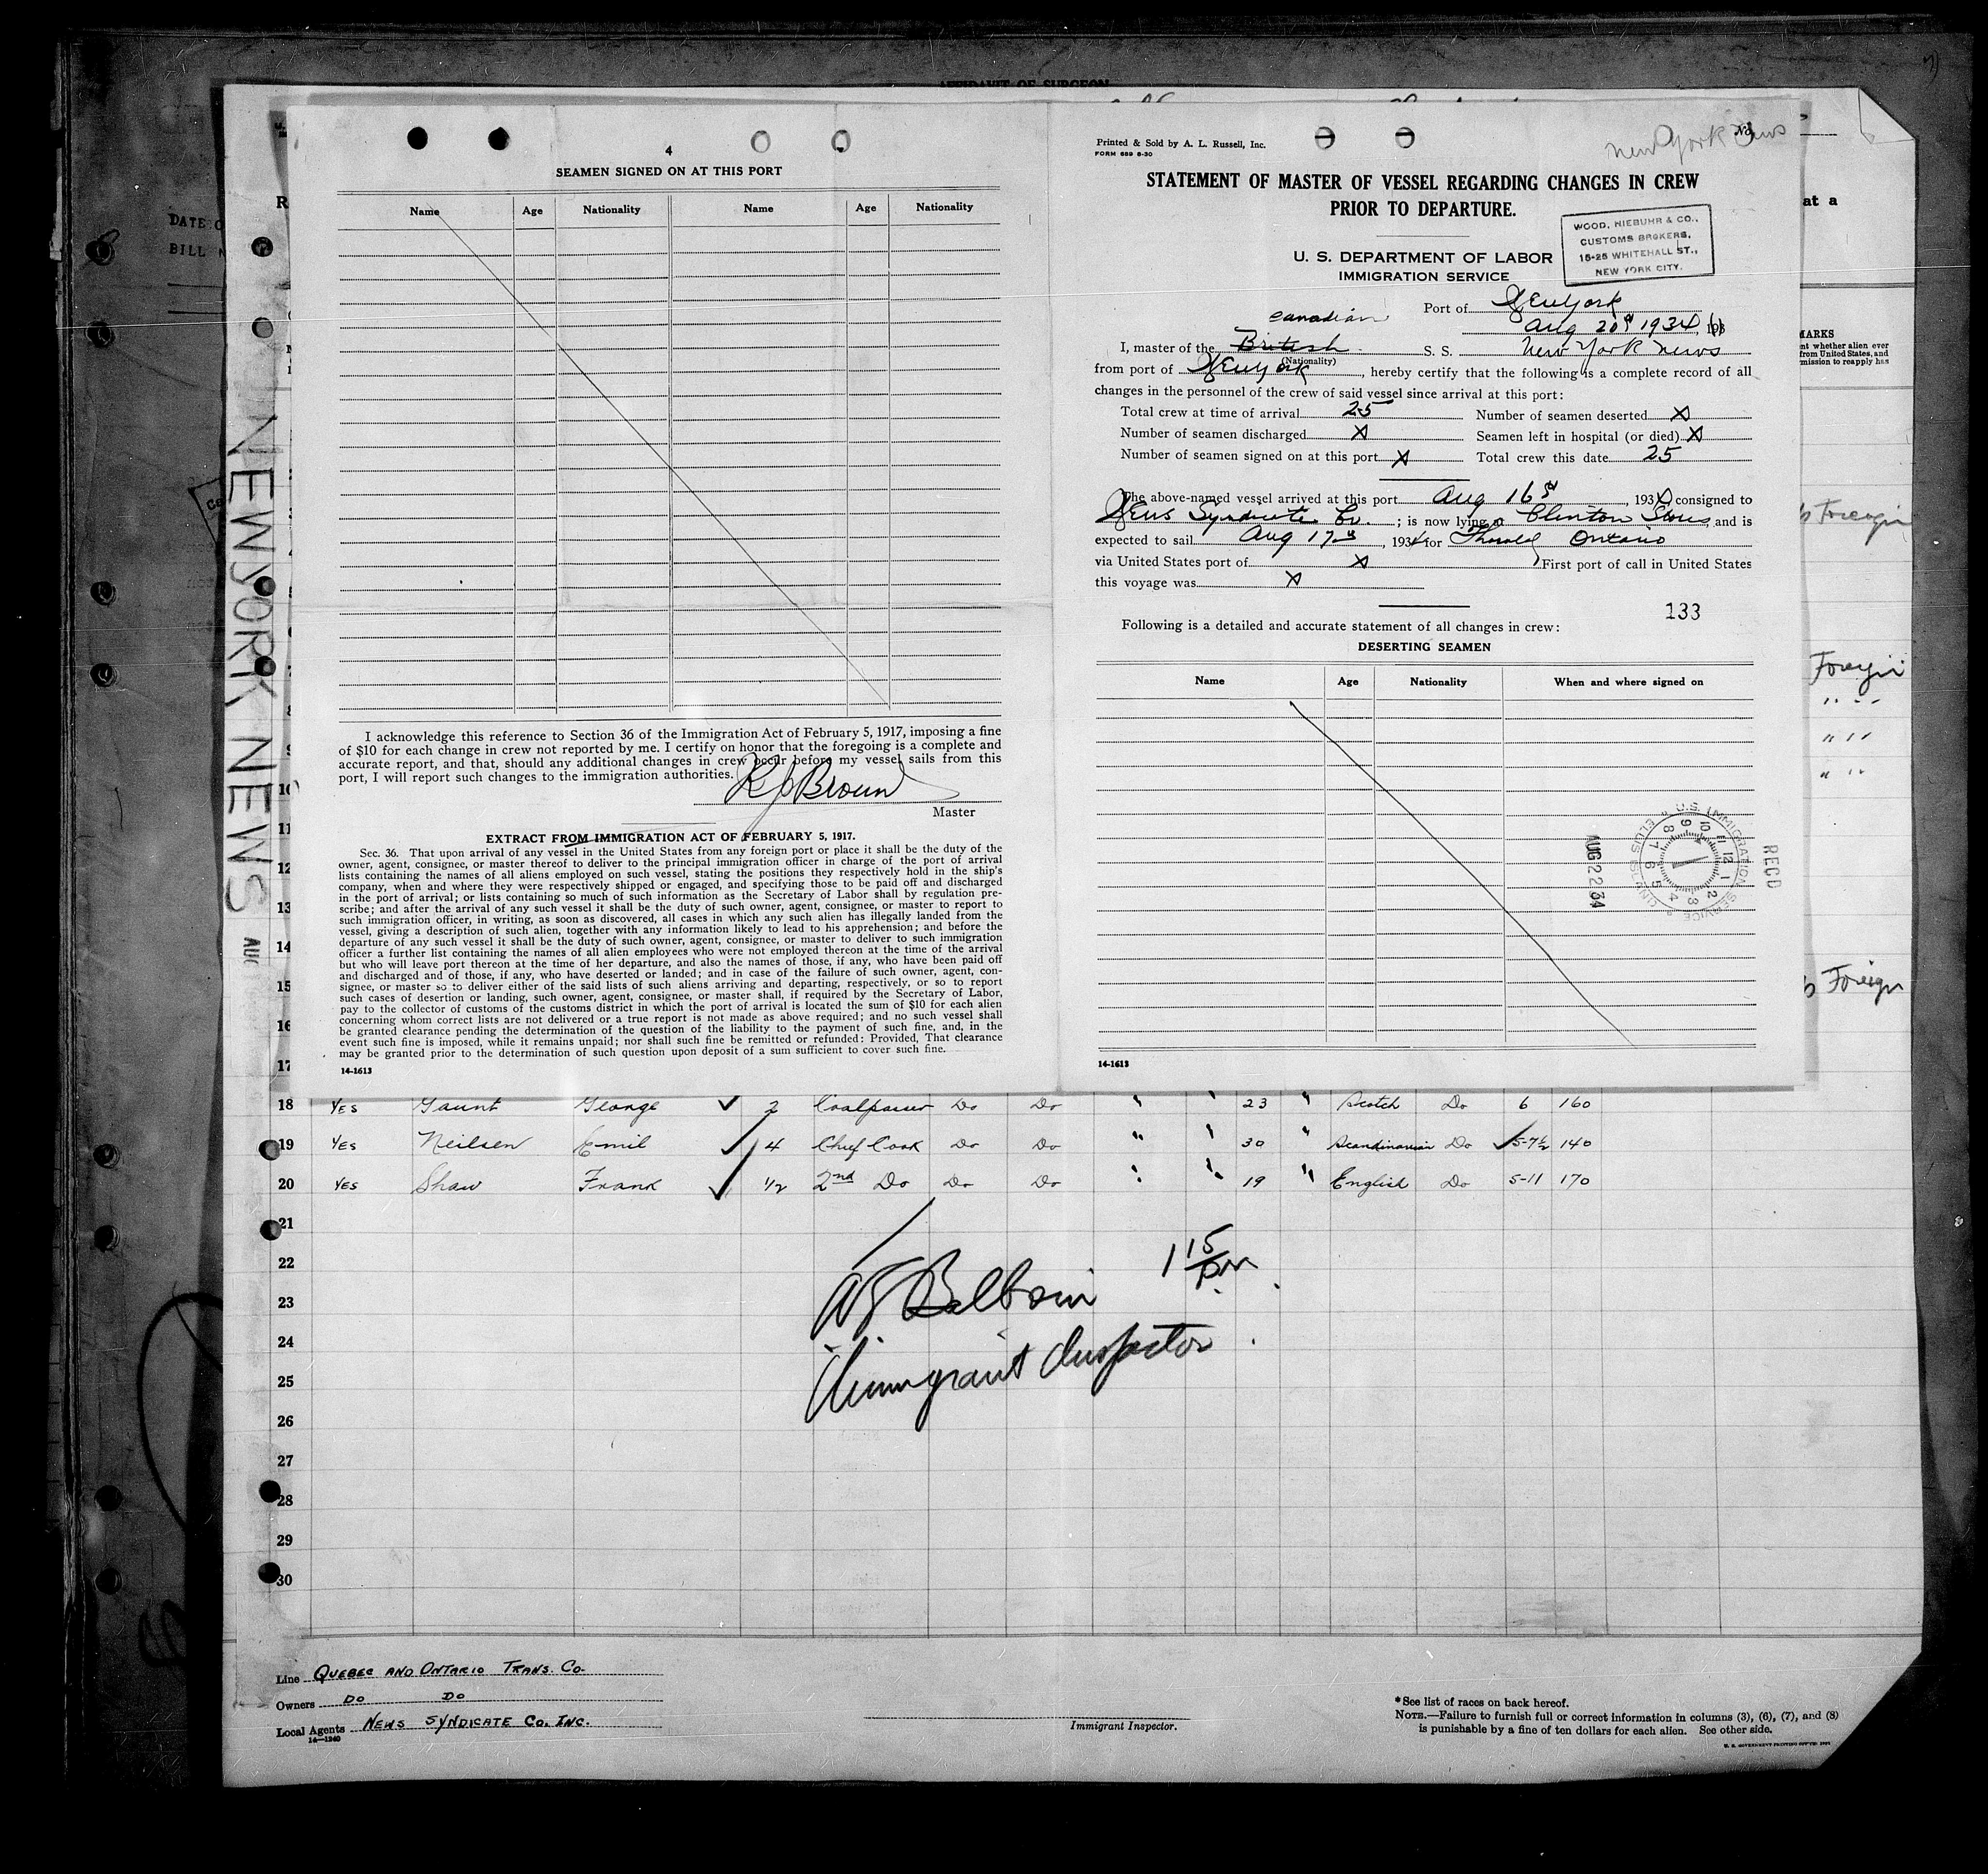 AFFIDAVIT OF SURGEON
4
SEAMEN SIGNED ON AT THIS PORT
Name Age Nationality Name Age Nationality
I acknowledge this reference to Section 36 of the Immigration Act of February 5, 1917, imposing a fine
of $10 for each change in crew not reported by me. I certify on honor that the foregoing is a complete and
accurate report, and that, should any additional changes in crew occur before my vessel sails from this
port, I will report such changes to the immigration authorities.
Brown
Master
EXTRACT FROM IMMIGRATION ACT OF FEBRUARY 5, 1917.
Sec. 36. That upon arrival of any vessel in the United States from any foreign port or place it shall be the duty of the
owner, agent, consignee, or master thereof to deliver to the principal immigration officer in charge of the port of arrival
lists containing the names of all aliens employed on such vessel, stating the positions they respectively hold in the ship's
company, when and where they were respectively shipped or engaged, and specifying those to be paid off and discharged
in the port of arrival; or lists containing so much of such information as the Secretary of Labor shall by regulation pre-
scribe; and after the arrival of any such vessel it shall be the duty of such owner, agent, consignee, or master to report to
such immigration officer, in writing, as soon as discovered, all cases in which any such alien has illegally landed from the
vessel, giving a description of such alien, together with any information likely to lead to his apprehension; and before the
departure of any such vessel it shall be the duty of such owner, agent, consignee, or master to deliver to such immigration
officer a further list containing the names of all alien employees who were not employed thereon at the time of the arrival
but who will leave port thereon at the time of her departure, and also the names of those, if any, who have been paid off
and discharged and of those, if any, who have deserted or landed; and in case of the failure of such owner, agent, con-
signee, or master so to deliver either of the said lists of such aliens arriving and departing, respectively, or so to report
such cases of desertion or landing, such owner, agent, consignee, or master shall, if required by the Secretary of Labor,
pay to the collector of customs of the customs district in which the port of arrival is located the sum of $10 for each alien
concerning whom correct lists are not delivered or a true report is not made as above required; and no such vessel shall
be granted clearance pending the determination of the question of the liability to the payment of such fine, and, in the
event such fine is imposed, while it remains unpaid; nor shall such fine be remitted or refunded: Provided, That clearance
may be granted prior to the determination of such question upon deposit of a sum sufficient to cover such fine.
14-1613
Printed & Sold by A. L. Russell, Inc.
FORM 689 6-30
New York News
STATEMENT OF MASTER OF VESSEL REGARDING CHANGES IN CREW
PRIOR TO DEPARTURE.
WOOD, NIEBUHR & CO.,
CUSTOMS BROKERS,
15-25 WHITEHALL ST.,
NEW YORK CITY.
U. S. DEPARTMENT OF LABOR
IMMIGRATION SERVICE
Port of New York
Canadian
Aug 20 1934
I, master of the British S. S. New York News
(Nationality)
from port of New York, hereby certify that the following is a complete record of all
changes in the personnel of the crew of said vessel since arrival at this port:
Total crew at time of arrival 25 Number of seamen deserted X
Number of seamen discharged X Seamen left in hospital (or died) X
Number of seamen signed on at this port X Total crew this date 25
The above-named vessel arrived at this port Aug 16, 1934, consigned to
News Syndicate Co.; is now lying at Clinton Stores and is
expected to sail Aug 17, 1934 for Thorold Ontario
via United States port of X First port of call in United States
this voyage was X
133
Following is a detailed and accurate statement of all changes in crew:
DESERTING SEAMEN
Name Age Nationality When and where signed on
RECD
U.S. IMMIGRATION SERVICE
AUG 22 34
14-1613
DATE O
BILL
at a
MARKS
nt whether alien ever
from United States, and
mission to reapply has
Foreign
Foreign
Foreign
NEW YORK NEWS
AUG
10
11
12
13
14
15
16
17
18 YES Gaunt George 2 Coalpasser Do Do " " 23 " Scotch Do 6 160
19 YES Neilsen Emil 4 Chief Cook Do Do " " 30 " Scandinavian Do 5-7½ 140
20 YES Shaw Frank ½ 2nd Do Do Do " " 19 " English Do 5-11 170
21
22
23
24
25
26
27
28
29
30
1 15 PM
Immigrant Inspector
Line QUEBEC AND ONTARIO TRANS. CO.
Owners DO DO
Local Agents NEWS SYNDICATE CO. INC.
14-1240
Immigrant Inspector.
*See list of races on back hereof.
NOTE.—Failure to furnish full or correct information in columns (3), (6), (7), and (8)
is punishable by a fine of ten dollars for each alien. See other side.